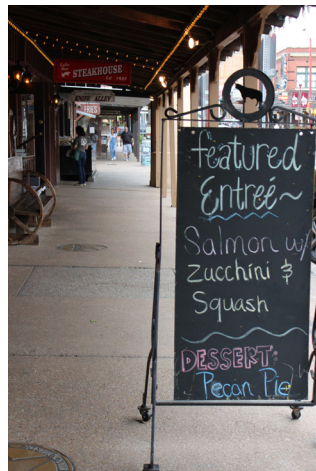 STEAKHOUSE
KNIFE ALLEY
featured
Entreé~
Salmon w/
zucchini &
Squash
DESSERT:
Pecan Pie